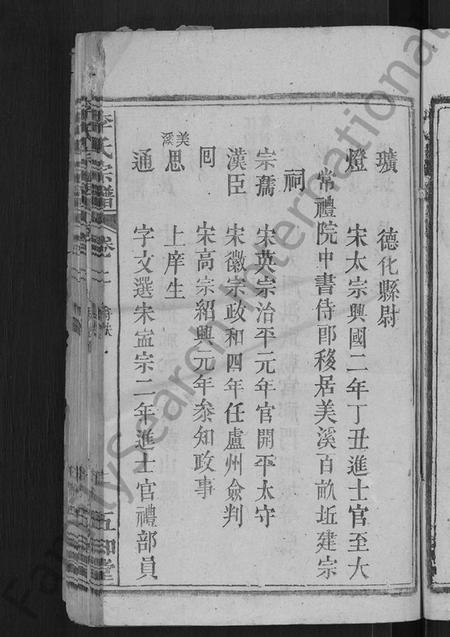 璜 德化縣尉
燈 宋太宗興國二年丁丑進士官至大
常禮院中書侍郎移居美溪百畝坵建宗
祠
宗孺 宋英宗治平元年官開平太守
漢臣 宋徽宗政和四年任盧州僉判
囘 宋高宗紹興元年叅知政事
美溪 思 上庠生
通 字文選宋寍宗二年進士官禮部員
李氏宗譜 卷一
五知堂
FamilySearch International